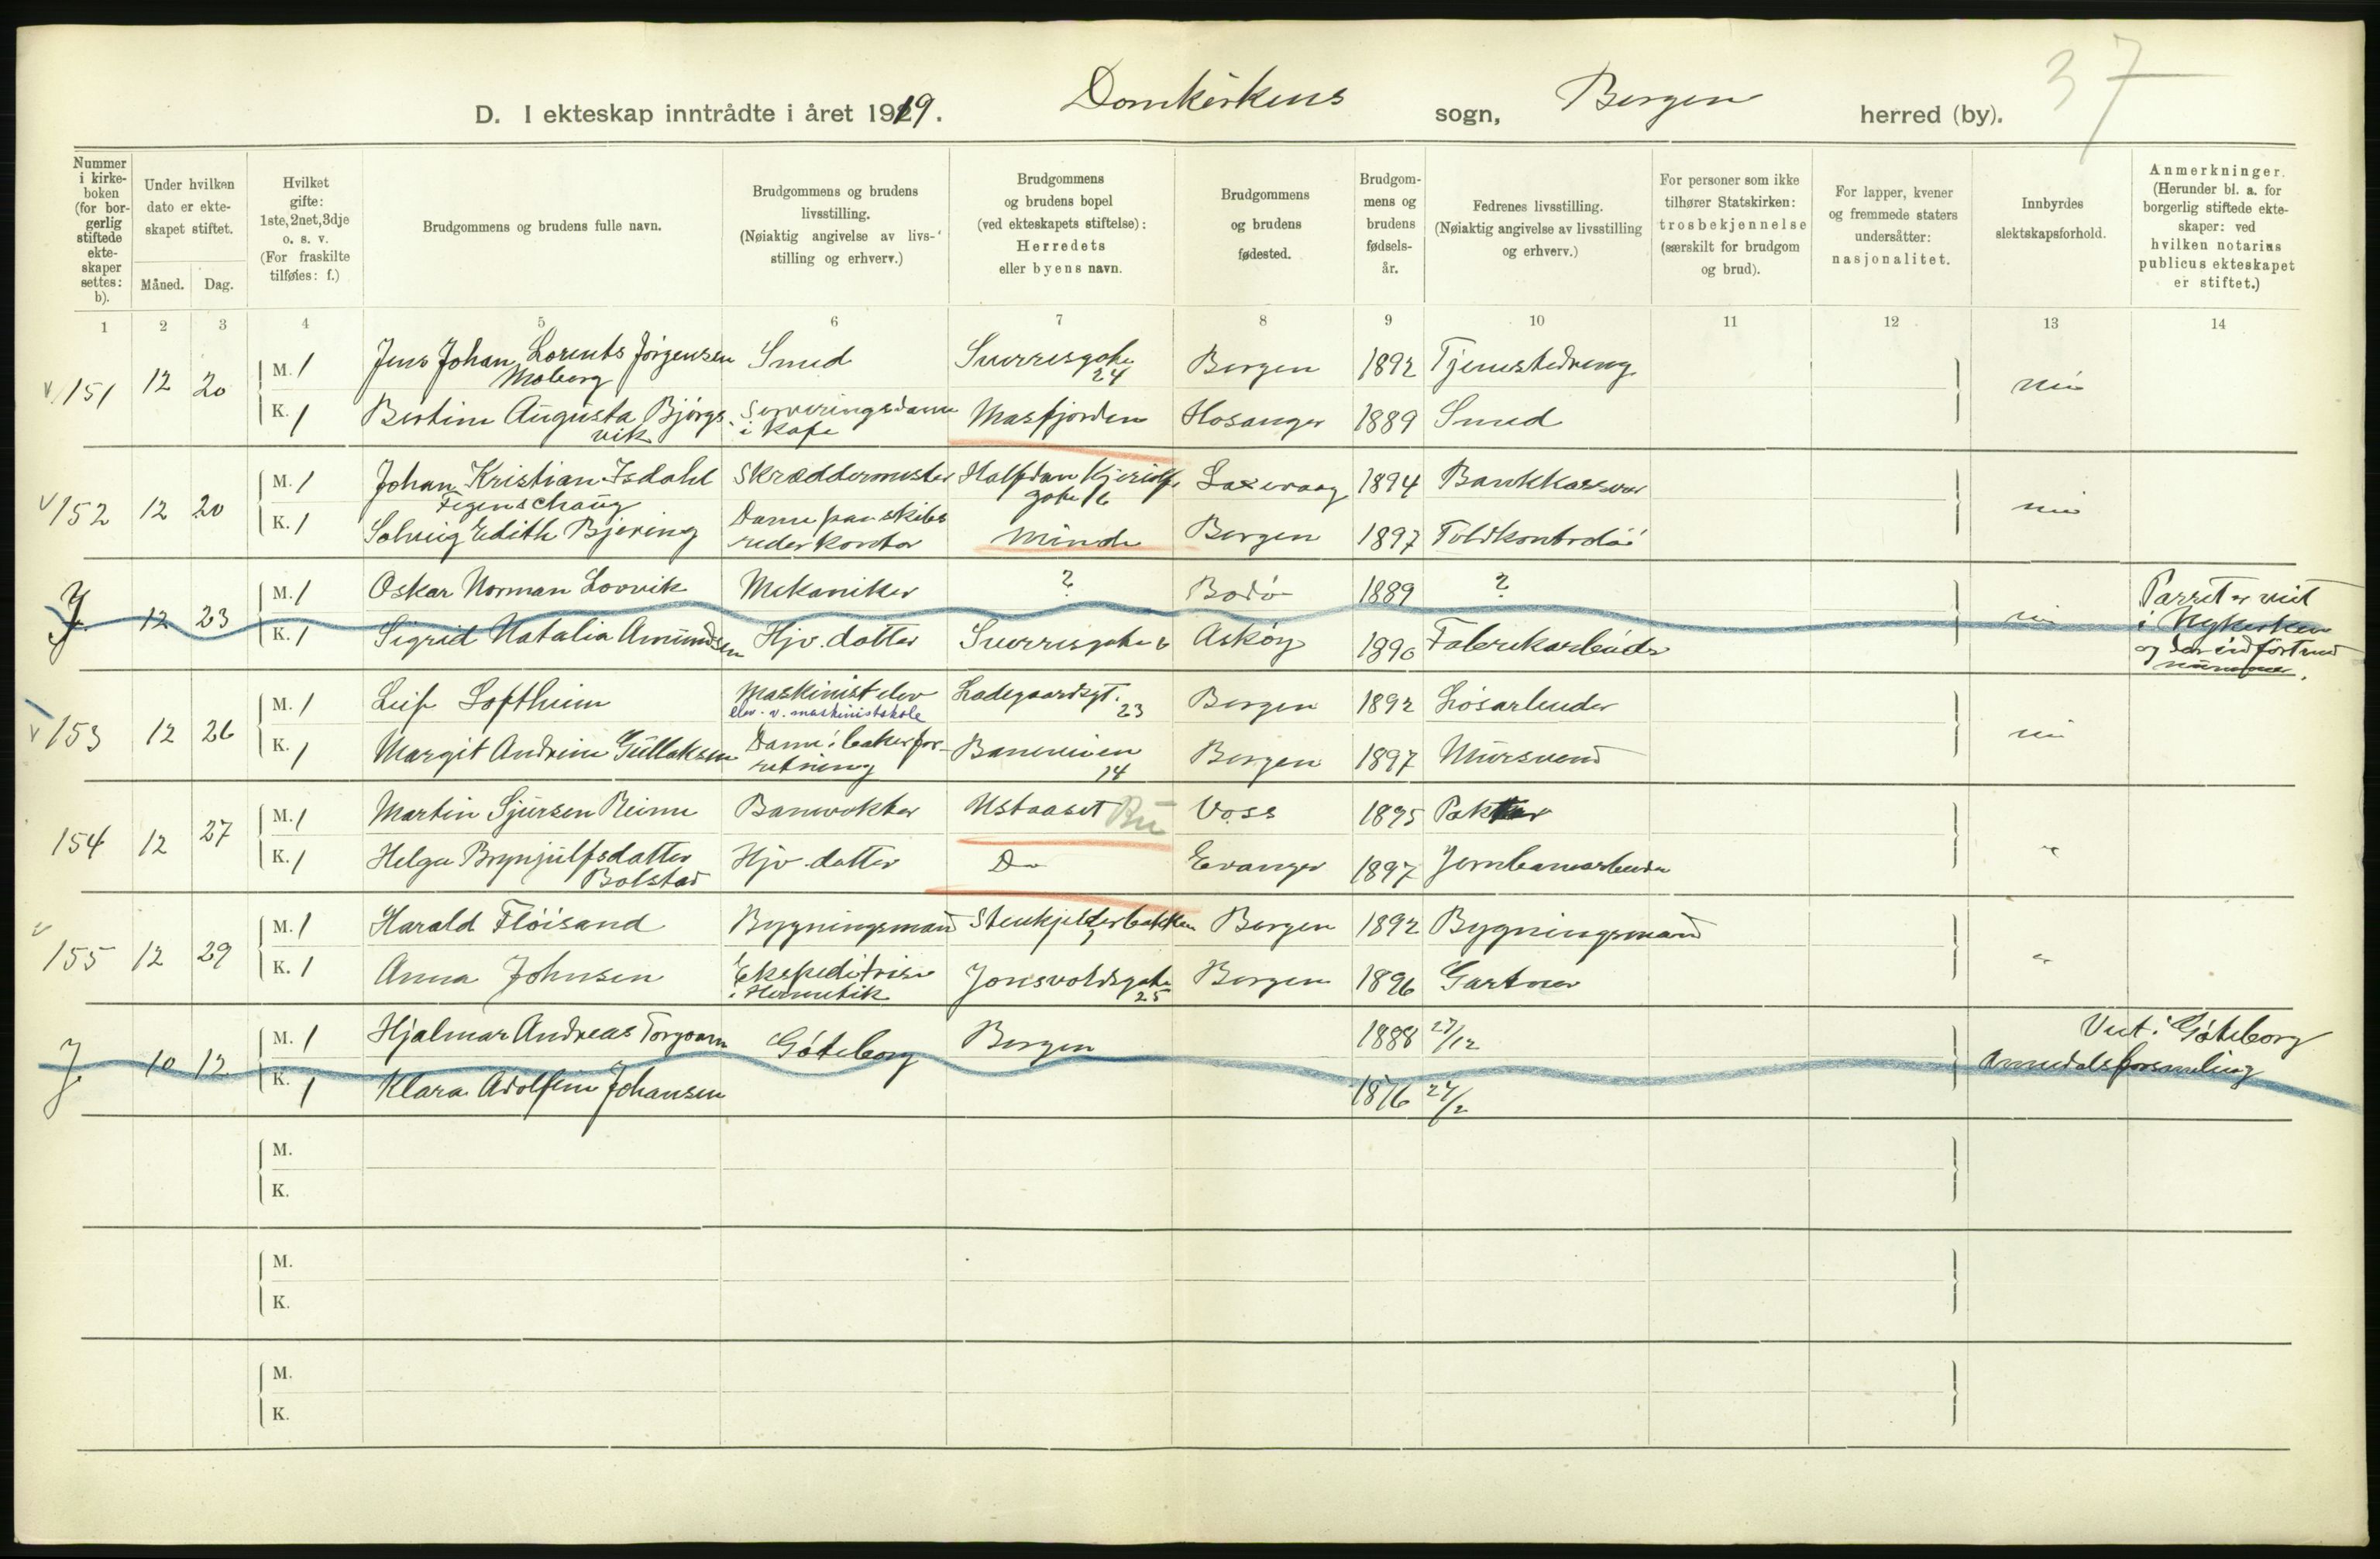 37
D. I ekteskap inntrådte i året 1919. Domkirkens sogn, Bergen herred (by).
Nummer i kirkeboken (for borgerlig stiftede ekteskaper settes: b).
Under hvilken dato er ekteskapet stiftet.
Måned. Dag.
Hvilket gifte: 1ste, 2net, 3dje o. s. v. (For fraskilte tilføies: f.)
Brudgommens og brudens fulle navn.
Brudgommens og brudens livsstilling. (Nøiaktig angivelse av livsstilling og erhverv.)
Brudgommens og brudens bopel (ved ekteskapets stiftelse): Herredets eller byens navn.
Brudgommens og brudens fødested.
Brudgommens og brudens fødselsår.
Fedrenes livsstilling. (Nøiaktig angivelse av livsstilling og erhverv.)
For personer som ikke tilhører Statskirken: trosbekjennelse (særskilt for brudgom og brud).
For lapper, kvener og fremmede staters undersåtter: nasjonalitet.
Innbyrdes slektskapsforhold.
Anmerkninger. (Herunder bl. a. for borgerlig stiftede ekteskaper: ved hvilken notarius publicus ekteskapet er stiftet.)
1 2 3 4 5 6 7 8 9 10 11 12 13 14
151 12 20 M. 1 Jens Johan Lorents Jørgensen Moberg Smed Sverresgate 24 Bergen 1892 Tjenestedreng nei
K. 1 Bertine Augusta Bjørgsvik Serveringsdame i kafe Masfjorden Hosanger 1889 Smed
152 12 20 M. 1 Johan Kristian Isdahl Figenschaug Skræddermester Halfdan Kjerulfs gate 16 Laxevaag 1894 Bankkasserer nei
K. 1 Solveig Edith Bjering Dame paa skibsrederkontor Minde Bergen 1897 Toldkontrolør
J. 12 23 M. 1 Oskar Norman Loovik Mekaniker ? Bodø 1889 ? nei Parret er viet i Nykirken og der indført med nummer.
K. 1 Sigrid Natalia Amundsen Hjv. datter Sverresgate 6 Askøy 1890 Fabrikarbeider
153 12 26 M. 1 Leif Loftheim Maskinistelev elev v. maskinistskole Ladegaardsgt. 23 Bergen 1892 Løsarbeider nei
K. 1 Margit Andrine Gullaksen Dame i bakerforretning Baneveien 14 Bergen 1897 Mursvend
154 12 27 M. 1 Martin Sjursen Reime Banevokter Ustaaset Bu Voss 1895 "
K. 1 Helga Brynjulfsdatter Bolstad Hjv. datter Do Evanger 1897 Jernbanearbeider
155 12 29 M. 1 Harald Fløisand Bygningsmand Stenkjelderbakken Bergen 1892 Bygningsmand "
K. 1 Anna Johnsen Ekspeditrise i Hermetik Jonsvoldsgate 25 Bergen 1896 Gartner
J. 10 12 M. 1 Hjalmar Andreas Göteborg Bergen 1888 27/12 Viet i Göteborg
K. 1 Klara Adolfine Johansen 1876 27/2
M.
K.
M.
K.
M.
K.